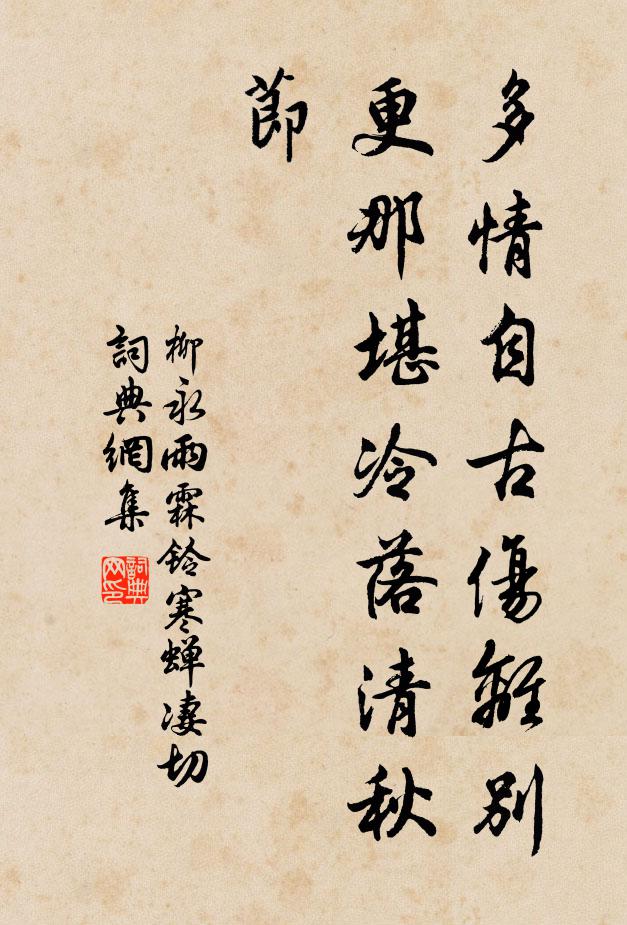 多情自古傷離別
更那堪冷落清秋
節
柳永雨霖鈴寒蝉凄切
詞典網集
詞典网印